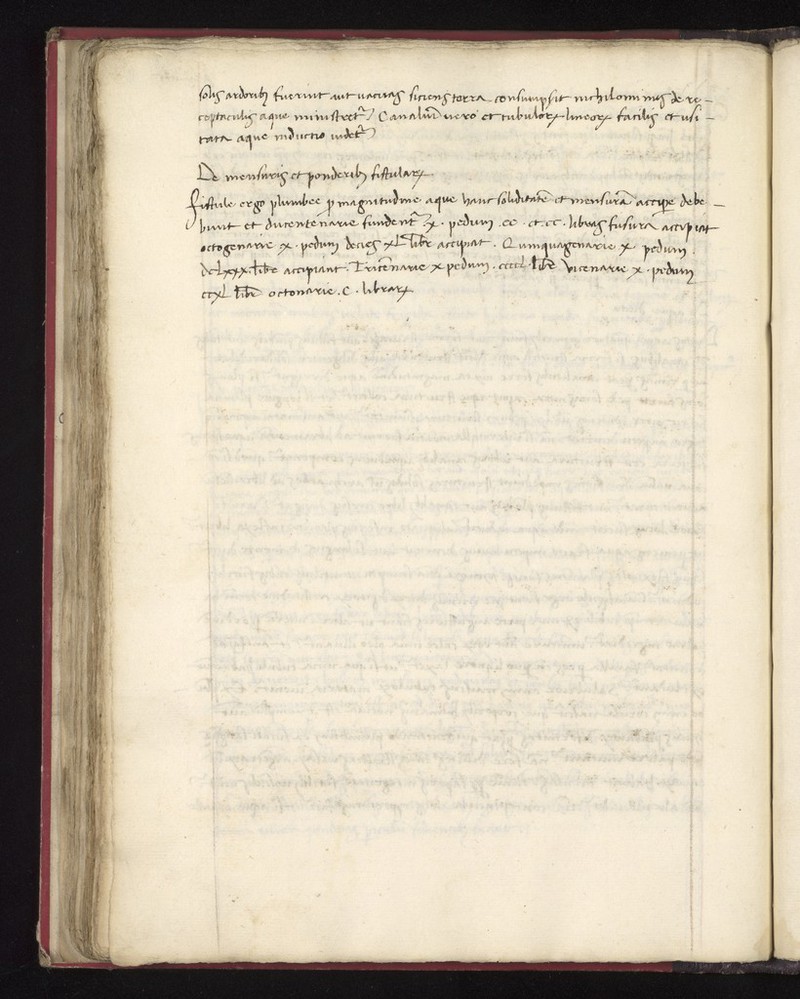 solis ardoribꝫ fuerint aut vacuas siciens terra consumpsit nichilominus de re-
ceptaculis aque ministretᷣ Canaliũ vero et tubuloꝝ lineoꝝ facilis et usi-
tata aque inductio videtᷣ
De mensuris et ponderibꝫ fistulaꝝ
Fistule ergo plumbee ꝓ magnitudine aque hanc soliditatẽ et mensurã accipe debe-
bunt et ducentenarie fundentᷣ x · pedum · cc · et · cc · libras fusura accipiat
octogenarie x · pedum decies xL libr̃ accipiat · Quinquagenarie x · pedum ·
dcLxxx · libr̃ accipiant · Tricẽnarie x pedum · ccccL · libr̃ vicenarie x · pedum
ccxL libr̃ octonarie · C · libraꝝ